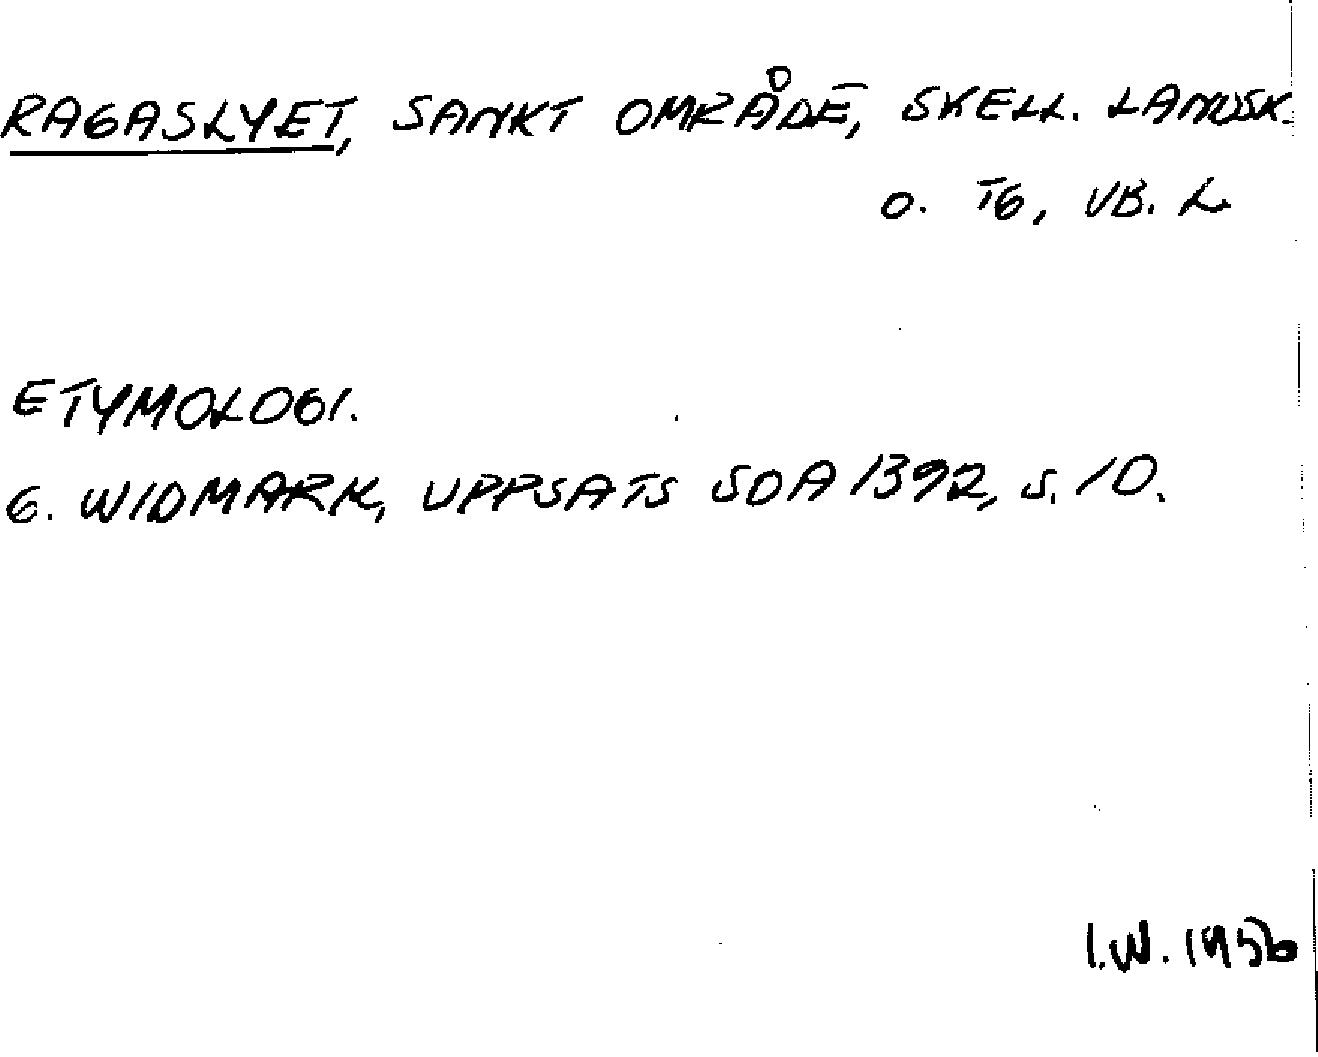 RAGASLYET, SANKT OMRÅDE, SKELL. LANDSK.
O. TG, VB. L
ETYMOLOGI.
G. WIDMARK, UPPSATS SOA 1392, S. 10.
I.W. 1956